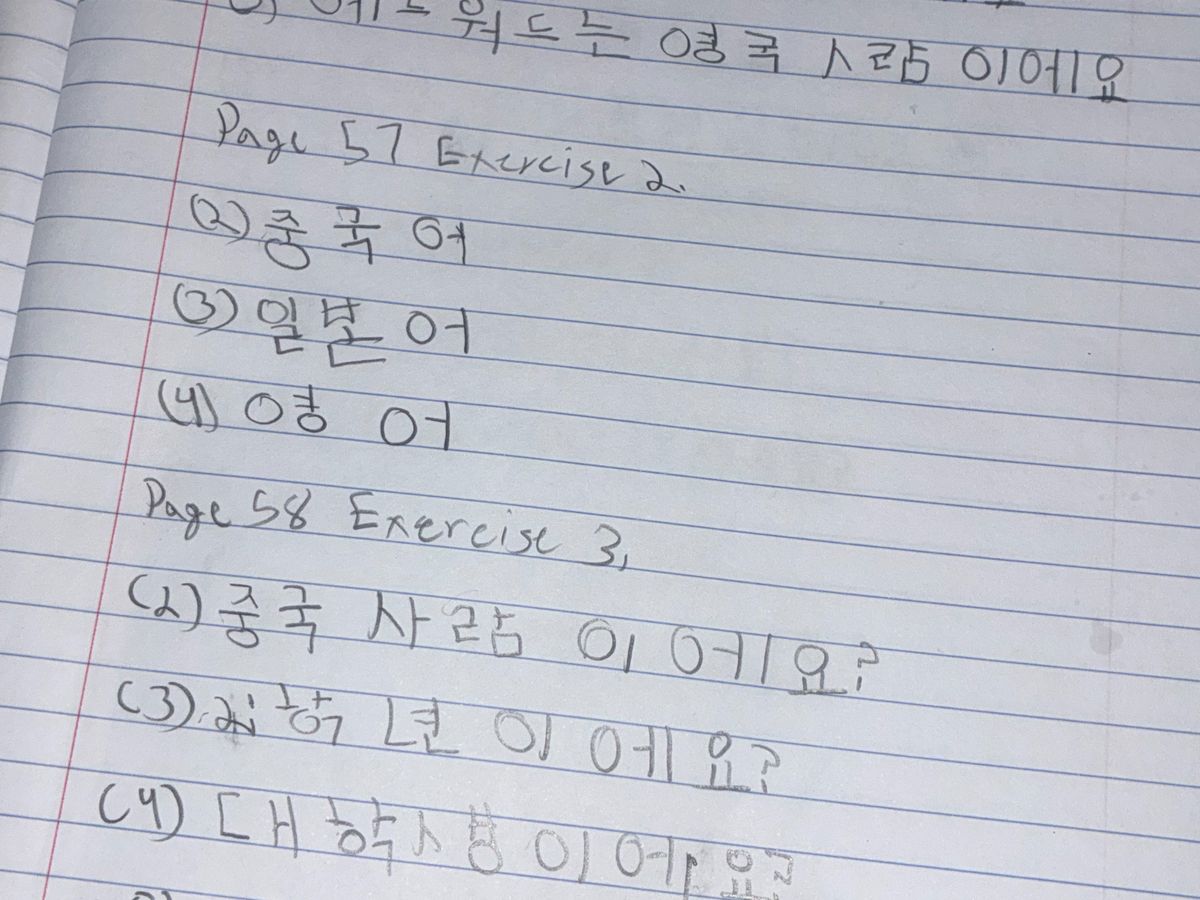 워드는 영국 사람 이에요
Page 57 Exercise 2.
(2) 중국어
(3) 일본어
(4) 영어
Page 58 Exercise 3.
(2) 중국 사람 이에요?
(3) 학년 이에요?
(4) 대학생 이에요?